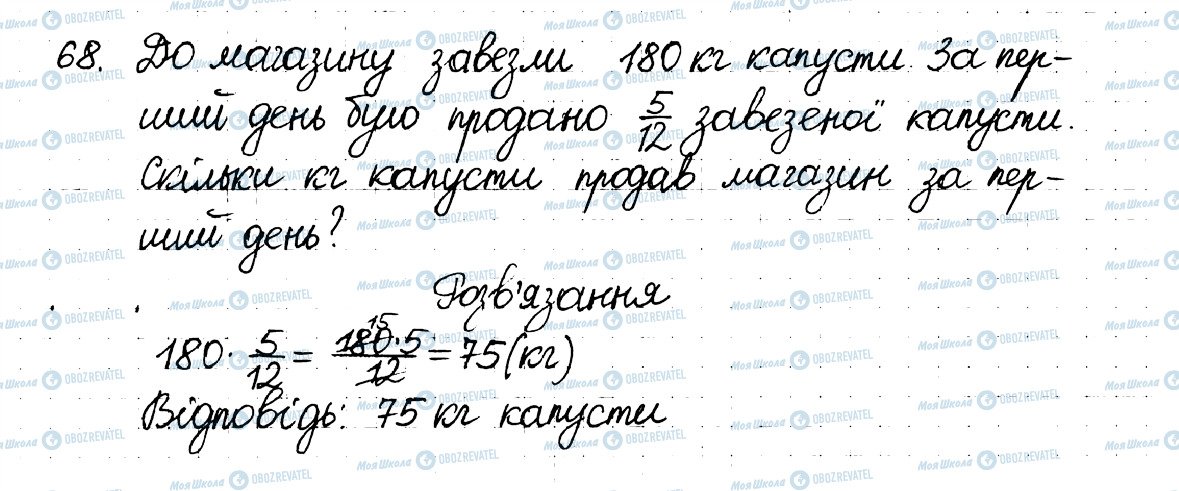 68. До магазину завезли 180 кг капусти. За пер-
ший день було продано 5/12 завезеної капусти.
Скільки кг капусти продав магазин за пер-
ший день?
Розв'язання
180 · 5/12 = 180 · 5/12 = 75 (кг)
15
Відповідь: 75 кг капусти
Моя Школа OBOZREVATEL